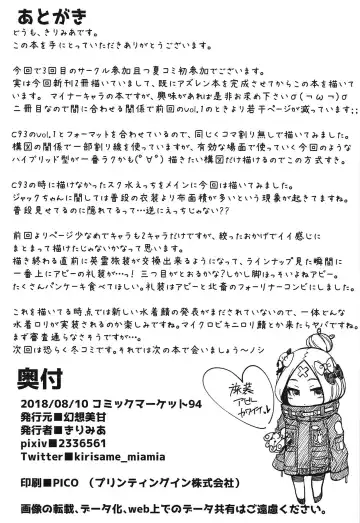 あとがき
どうも、きりみあです。
この本を手にとっていただきありがとうございます。
今回で3回目のサークル参加且つ夏コミ初参加でございます。
実は今回新刊2冊描いていまして、既にアズレン本を完成させてからこの本を描いて
います。 マイナーキャラの本ですが、興味があれば是非お求め下さいσ(つω￢)σ
二冊目なので間に合わせる関係で前回のvol.1のときより若干ページが減っています;;
C93のvol.1とフォーマットを合わせているので、同じくコマ割り無しで描いてみました。
構図の関係で一部割り線を使っていますが、有効な場面で使っていく今回のような
ハイブリッド型が一番ラクかも(°∀°) 描きたい構図だけ描けるのでこの方式すき。
C93の時に描けなかったスク水えっちをメインに今回は描いてみました。
ジャックちゃんに関しては普段の衣装より布面積が多いという現象が起きてますね。
普段見せてるのに隠れてるって…逆にえっちじゃない??
前回よりページ少なめでキャラも2キャラだけですが、絞ったおかげでイイ感じに
まとまって描けたじゃないかなって思います。
描き終わる直前に英霊旅装が交換出来るようになって、ラインナップ見た瞬間に
一番上にアビーの礼装が…っ! 三つ目がとおるかな?しかし脚ほっそいよねアビー。
たくさんパンケーキ食べてほしい。礼装はアビーと北斎のフォーリナーコンビにしました。
これを描いてる時点では新しい水着鯖の発表がまだされていないので、一体どんな
水着ロリが実装されるのか楽しみですね。マイクロビキニロリ鯖とか来たらヤバですね。
まず審査通らなさそうですが…。
次回は恐らく冬コミです。それでは次の本で会いましょう〜ノシ
奥付
2018/08/10 コミックマーケット94
発行元■幻想美甘
発行者■きりみあ
pixiv■2336561
Twitter■kirisame_miamia
印刷■PICO (プリンティングイン株式会社)
画像の転載、データ化、web上でのデータ共有はご遠慮ください。
旅装
アビー
カワイイ